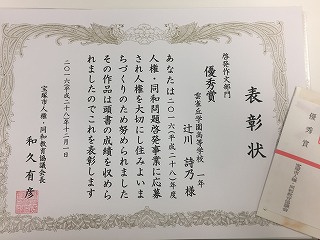 表彰状
啓発作文部門
優秀賞
雲雀丘学園高等学校 一年
辻川 詩乃 様
あなたは二〇一六(平成二十八)年度
人権・同和問題啓発事業に応募
され人権を大切にし住みよいま
ちづくりのため努められました
その作品は頭書の成績を収めら
れましたのでこれを表彰します
二〇一六(平成二十八)年十二月一日
宝塚市人権・同和教育協議会会長
和久有彦
優秀賞